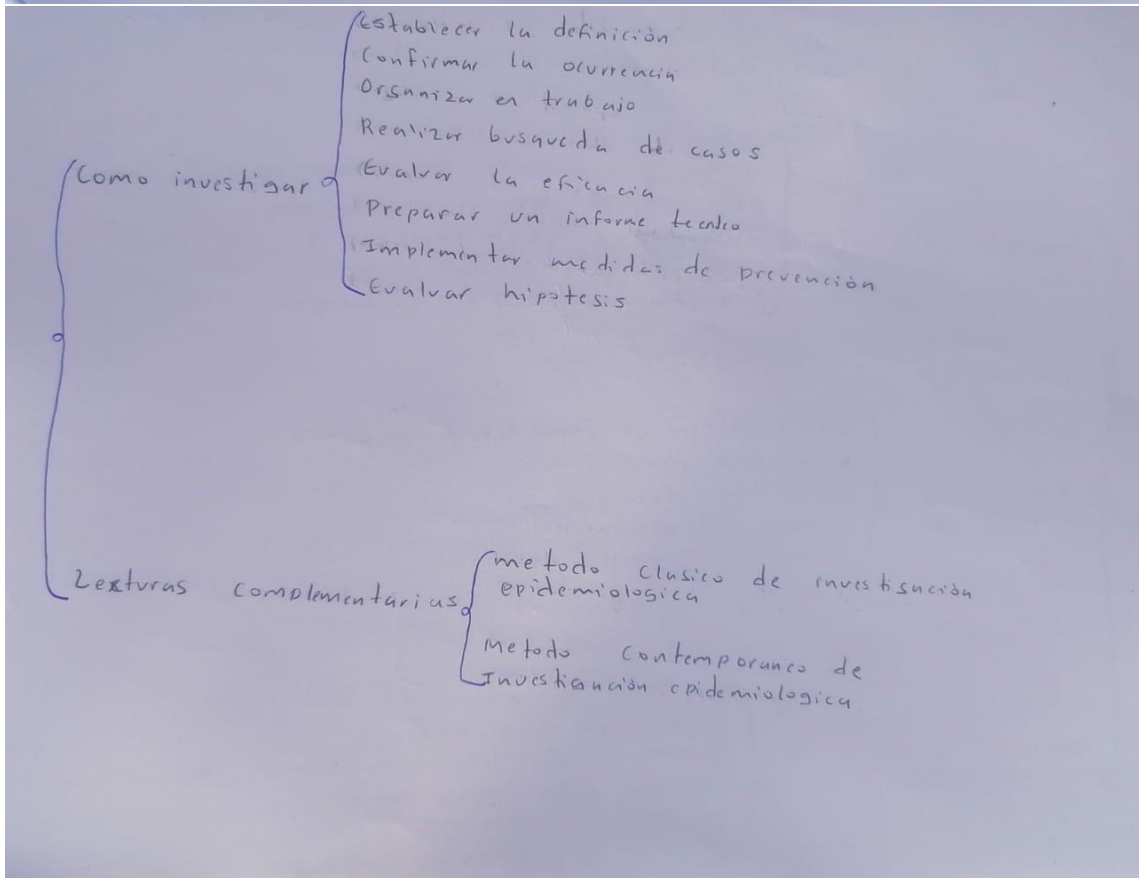 Establecer la definición
Confirmar la ocurrencia
Organizar en trabajo
Realizar busqueda de casos
Como investigar
Evaluar la eficacia
Preparar un informe tecnico
Implementar medidas de prevención
Evaluar hipotesis
Lexturas complementarias
metodo clasico de investigación
epidemiologica
Metodo contemporaneo de
Investigación epidemiologica